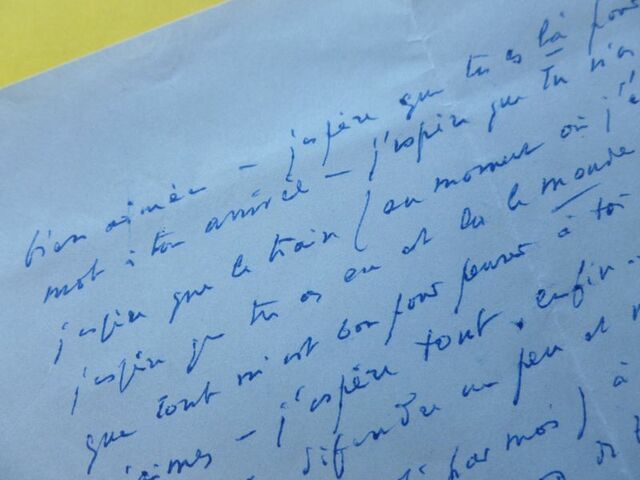 bien aimée — j'espère que tu es là pour
mot à ton arrivée — j'espère que tu n'as
j'espère que le train (au moment où j'é
j'espère que tu as eu et lu le monde
que tout m'est bon pour penser à toi
aimes — j'espère tout, enfin...
un peu et
par mois) à